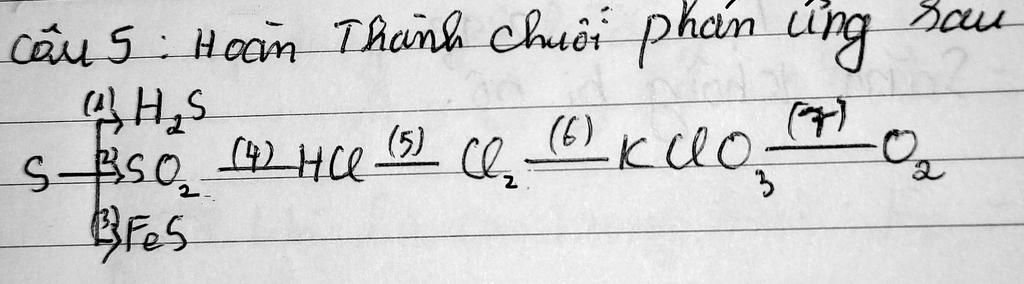 Câu 5 : Hoàn Thành chuỗi phản ứng sau
(1) H₂S
S (2) SO₂ (4) HCl (5) Cl₂ (6) KClO₃ (7) O₂
(3) FeS